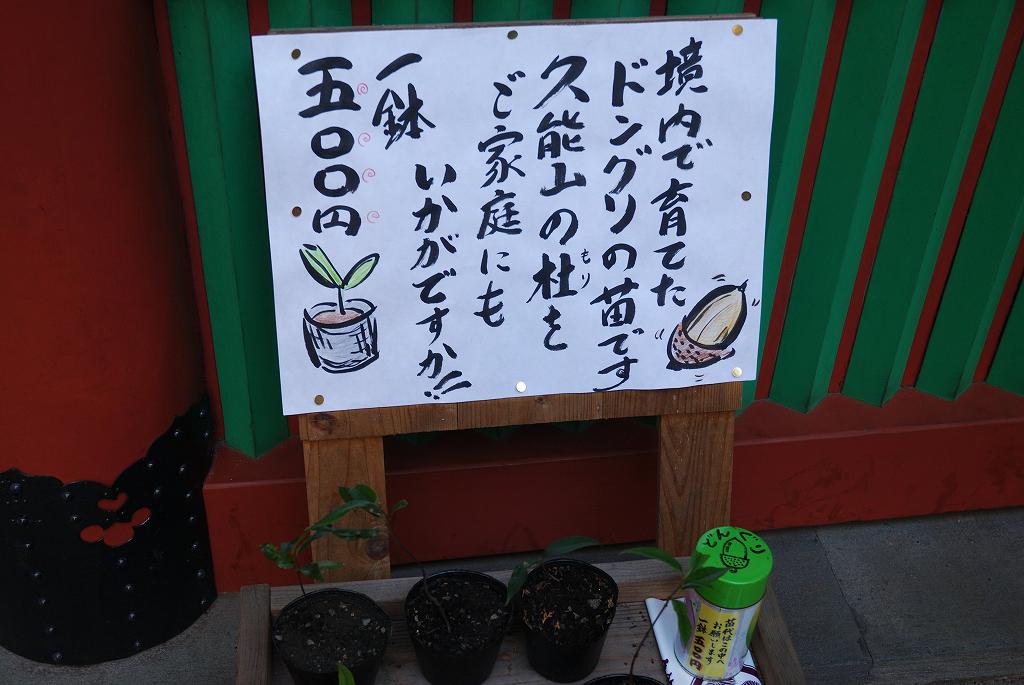 境内で育てた
ドングリの苗です
久能山の杜を
もり
ご家庭にも
いかがですか!!
一鉢
五〇〇円
どんぐり
苗代はこの中へ
お願いします
一鉢 五〇〇円